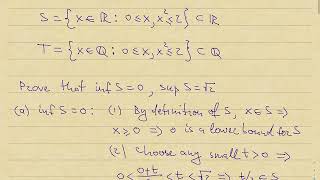 S = {x∈ℝ : 0≤x, x²≤2} ⊂ ℝ
T = {x∈ℚ : 0≤x, x²≤2} ⊂ ℚ
Prove that inf S=0, sup S=√2
(a) inf S=0: (1) By definition of S, x∈S ⇒
x≥0 ⇒ 0 is a lower bound for S
(2) Choose any small t>0 ⇒
0< (0+t)/2 <t<√2 ⇒ t/2 ∈ S